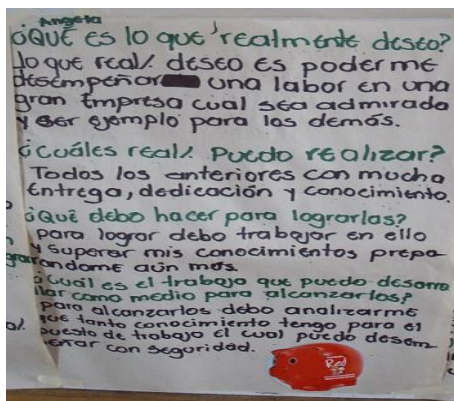 Angela
¿QUÉ ES lo que realmente deseo?
lo que real/. deseo es poderme
desempeñar una labor en una
gran Empresa cual sea admirada
y ser ejemplo para los demás.
¿Cuáles real/. Puedo realizar?
Todos los anteriores con mucha
Entrega, dedicación y conocimiento.
¿Qué debo hacer para lograrlas?
para lograr debo trabajar en ello
y superar mis conocimientos prepa
randome aún mas.
¿Cuál es el trabajo que puedo desarro
llar como medio para alcanzarlos?
para alcanzarlos debo analizarme
que tanto conocimiento tengo para el
puesto de trabajo el cual puedo desem
eñar con seguridad.
Red